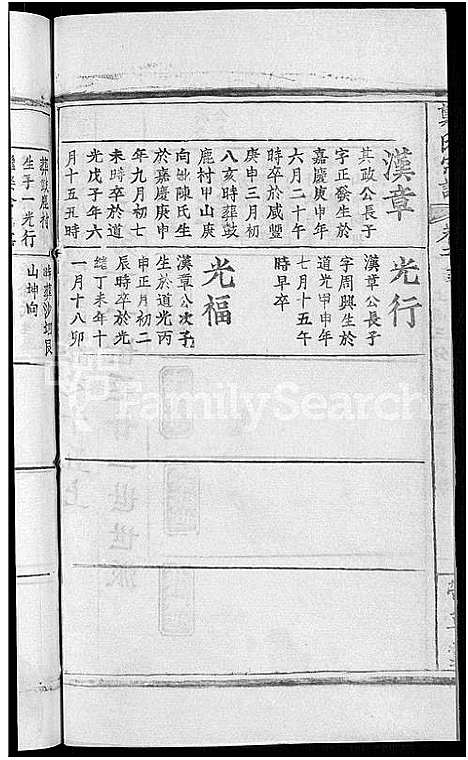 漢章
其政公長子
字正發生於
嘉慶庚申年
六月二十午
時卒於咸豐
庚申三月初
八亥時葬鼓
鹿村甲山庚
向妣陳氏生
於嘉慶庚申
年九月初七
未時卒於道
光戊子年六
月十五丑時
葬鼓鹿村
生子一光行
光行
漢章公長子
字周興生於
道光甲申年
七月十五午
時早卒
光福
漢章公次子
生於道光丙
申正月初二
辰時卒於光
緒丁未年十
一月十八卯
時葬沙烟艮
山坤向
FamilySearch